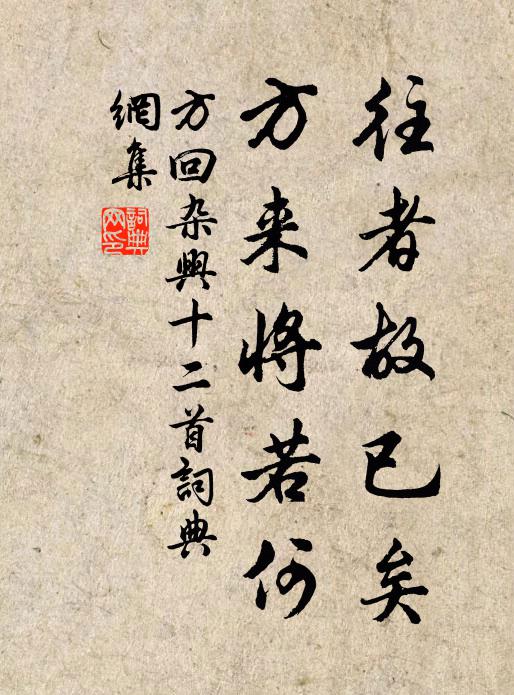 往者故已矣
方来將若何
方回杂興十二首詞典
網集
詞典
网印